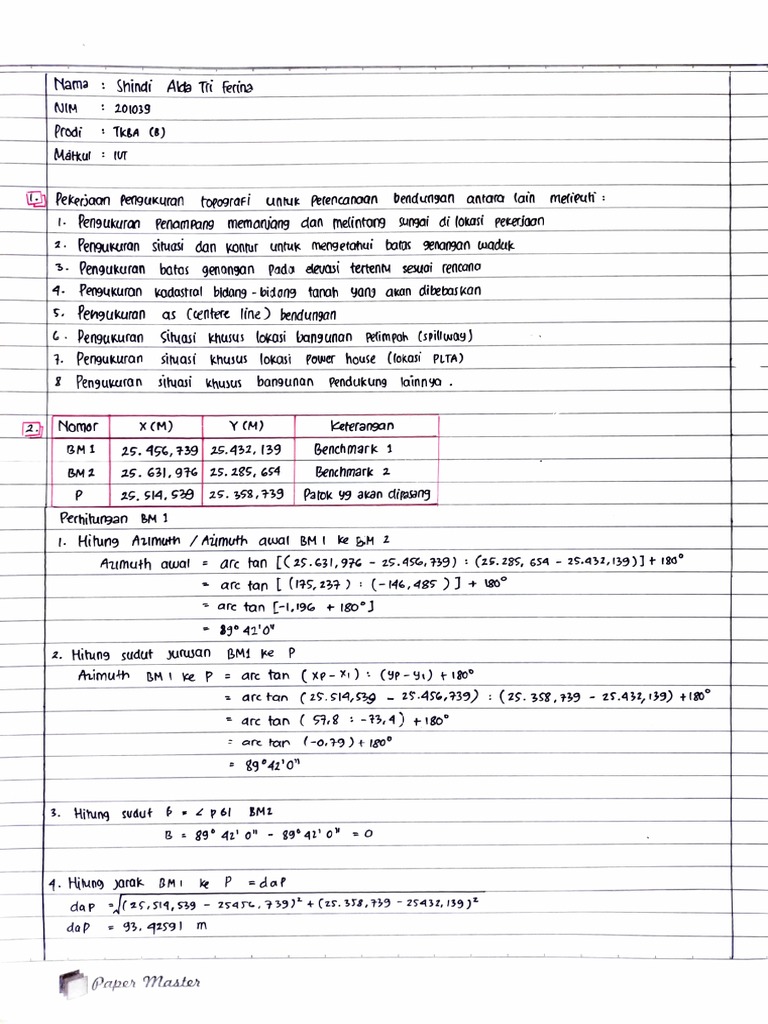 Nama : Shindi Alda Tri Ferina
NIM : 201039
Prodi : TKBA (B)
Matkul : IUT
1. Pekerjaan pengukuran topografi untuk perencanaan bendungan antara lain meliputi :
1. Pengukuran penampang memanjang dan melintang sungai di lokasi pekerjaan
2. Pengukuran situasi dan kontur untuk mengetahui batas genangan waduk
3. Pengukuran batas genangan pada elevasi tertentu sesuai rencana
4. Pengukuran kadastral bidang-bidang tanah yang akan dibebaskan
5. Pengukuran as (centere line) bendungan
6. Pengukuran situasi khusus lokasi bangunan pelimpah (spillway)
7. Pengukuran situasi khusus lokasi power house (lokasi PLTA)
8 Pengukuran situasi khusus bangunan pendukung lainnya.
2. Nomor X (M) Y (M) Keterangan
BM 1 25.456,739 25.432,139 Benchmark 1
BM 2 25.631,976 25.285,654 Benchmark 2
P 25.514,539 25.358,739 Patok yg akan dipasang
Perhitungan BM 1
1. Hitung Azimuth / Azimuth awal BM 1 ke BM 2
Azimuth awal = arc tan [(25.631,976 - 25.456,739) : (25.285,654 - 25.432,139)] + 180°
= arc tan [(175,237) : (-146,485)] + 180°
= arc tan [-1,196 + 180°]
= 89° 42' 0"
2. Hitung sudut jurusan BM1 ke P
Azimuth BM 1 ke P = arc tan (xp - x1) : (yp - y1) + 180°
= arc tan (25.514,539 - 25.456,739) : (25.358,739 - 25.432,139) + 180°
= arc tan (57,8 : -73,4) + 180°
= arc tan (-0,79) + 180°
= 89° 42' 0"
3. Hitung sudut β = ∠ p b1 BM2
B = 89° 42' 0" - 89° 42' 0" = 0
4. Hitung jarak BM 1 ke P = dap
dap = √(25,514,539 - 25456,739)² + (25.358,739 - 25432,139)²
dap = 93,42591 m
Paper Master